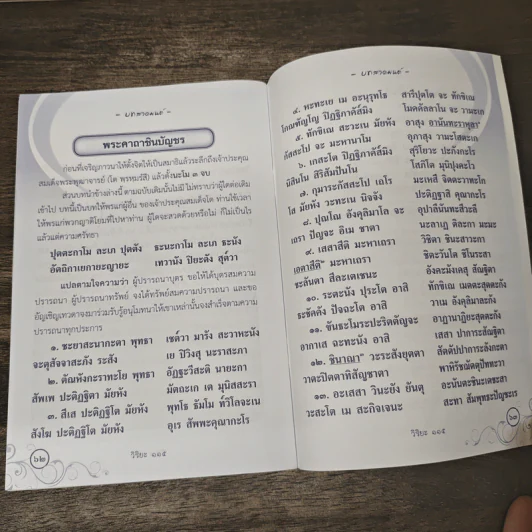 - บทสวดมนต์ -
พระคาถาชินบัญชร
ก่อนที่เจริญภาวนาให้ตั้งจิตให้เป็นสมาธิแล้วระลึกถึงเจ้าประคุณ
สมเด็จพระพุฒาจารย์ (โต พรหมรังสี) แล้วตั้งนะโม ๓ จบ
ส่วนบทนำข้างล่างนี้ ตามฉบับเดิมนั้นไม่มี ไม่ทราบว่าผู้ใดต่อเติม
เข้าไป บทนี้เป็นบทให้พรแก่ผู้อื่น ของเจ้าประคุณสมเด็จโต ท่านใช้เวลา
ให้พรแก่พวกญาติโยมที่ไปหาท่าน ผู้ใดจะสวดด้วยหรือไม่ ก็ไม่เป็นไร
แล้วแต่ความศรัทธา
ปุตตะกาโม ละเภ ปุตตัง ธะนะกาโม ละเภ ธะนัง
อัตถิกาเยกายะญายะ เทวานัง ปิยะตัง สุต๎วา
แปลตามใจความว่า ผู้ปรารถนาบุตร ขอให้ได้บุตรสมความ
ปรารถนา ผู้ปรารถนาทรัพย์ จงได้ทรัพย์สมความปรารถนา และขอ
อัญเชิญเทวดาจงมาร่วมรับรู้อนุโมทนาให้เราเหล่านั้นจงสำเร็จตามความ
ปรารถนาทุกประการ
๑. ชะยาสะนากะตา พุทธา เชต๎วา มารัง สะวาหะนัง
จะตุสัจจาสะภัง ระสัง เย ปิวิงสุ นะราสะภา
๒. ตัณหังกะราทะโย พุทธา อัฏฐะวีสะติ นายะกา
สัพเพ ปะติฏฐิตา มัยหัง มัตถะเก เต มุนิสสะรา
๓. สีเส ปะติฏฐิโต มัยหัง พุทโธ ธัมโม ท๎วิโลจะเน
สังโฆ ปะติฏฐิโต มัยหัง อุเร สัพพะคุณากะโร
๖๒
วิริยะ ๑๑๕
- บทสวดมนต์ -
๔. หะทะเย เม อะนุรุทโธ สารีปุตโต จะ ทักขิเณ
โกณฑัญโญ ปิฏฐิภาคัส๎มิง โมคคัลลาโน จะ วามะเก
๕. ทักขิเณ สะวะเน มัยหัง อาสุง อานันทะราหุลา
กัสสะโป จะ มะหานาโม อุภาสุง วามะโสตะเก
๖. เกสะโต ปิฏฐิภาคัส๎มิง สุริโยวะ ปะภังกะโร
นิสินโน สิริสัมปันโน โสภิโต มุนิปุงคะโว
๗. กุมาระกัสสะโป เถโร มะเหสี จิตตะวาทะโก
โส มัยหัง วะทะเน นิจจัง ปะติฏฐาสิ คุณากะโร
๘. ปุณโณ อังคุลิมาโล จะ อุปาลีนันทะสีวะลี
เถรา ปัญจะ อิเม ชาตา นะลาเฏ ติละกา มะมะ
๙. เสสาสีติ มะหาเถรา วิชิตา ชินะสาวะกา
เอตาสีติ มะหาเถรา ชิตะวันโต ชิโนระสา
ชะลันตา สีละเตเชนะ อังคะมังเคสุ สัณฐิตา
๑๐. ระตะนัง ปุระโต อาสิ ทักขิเณ เมตตะสุตตะกัง
ธะชัคคัง ปัจฉะโต อาสิ วาเม อังคุลิมาละกัง
๑๑. ขันธะโมระปะริตตัญจะ อาฏานาฏิยะสุตตะกัง
อากาเส ฉะทะนัง อาสิ เสสา ปาการะสัณฐิตา
๑๒. ชินาณา วะระสังยุตตา สัตตัปปาการะลังกะตา
วาตะปิตตาทิสัญชาตา พาหิรัชฌัตตุปัททะวา
๑๓. อะเสสา วินะยัง ยันตุ อะนันตะชินะเตชะสา
วะสะโต เม สะกิจเจนะ สะทา สัมพุทธะปัญชะเร
วิริยะ ๑๑๕
๖๓